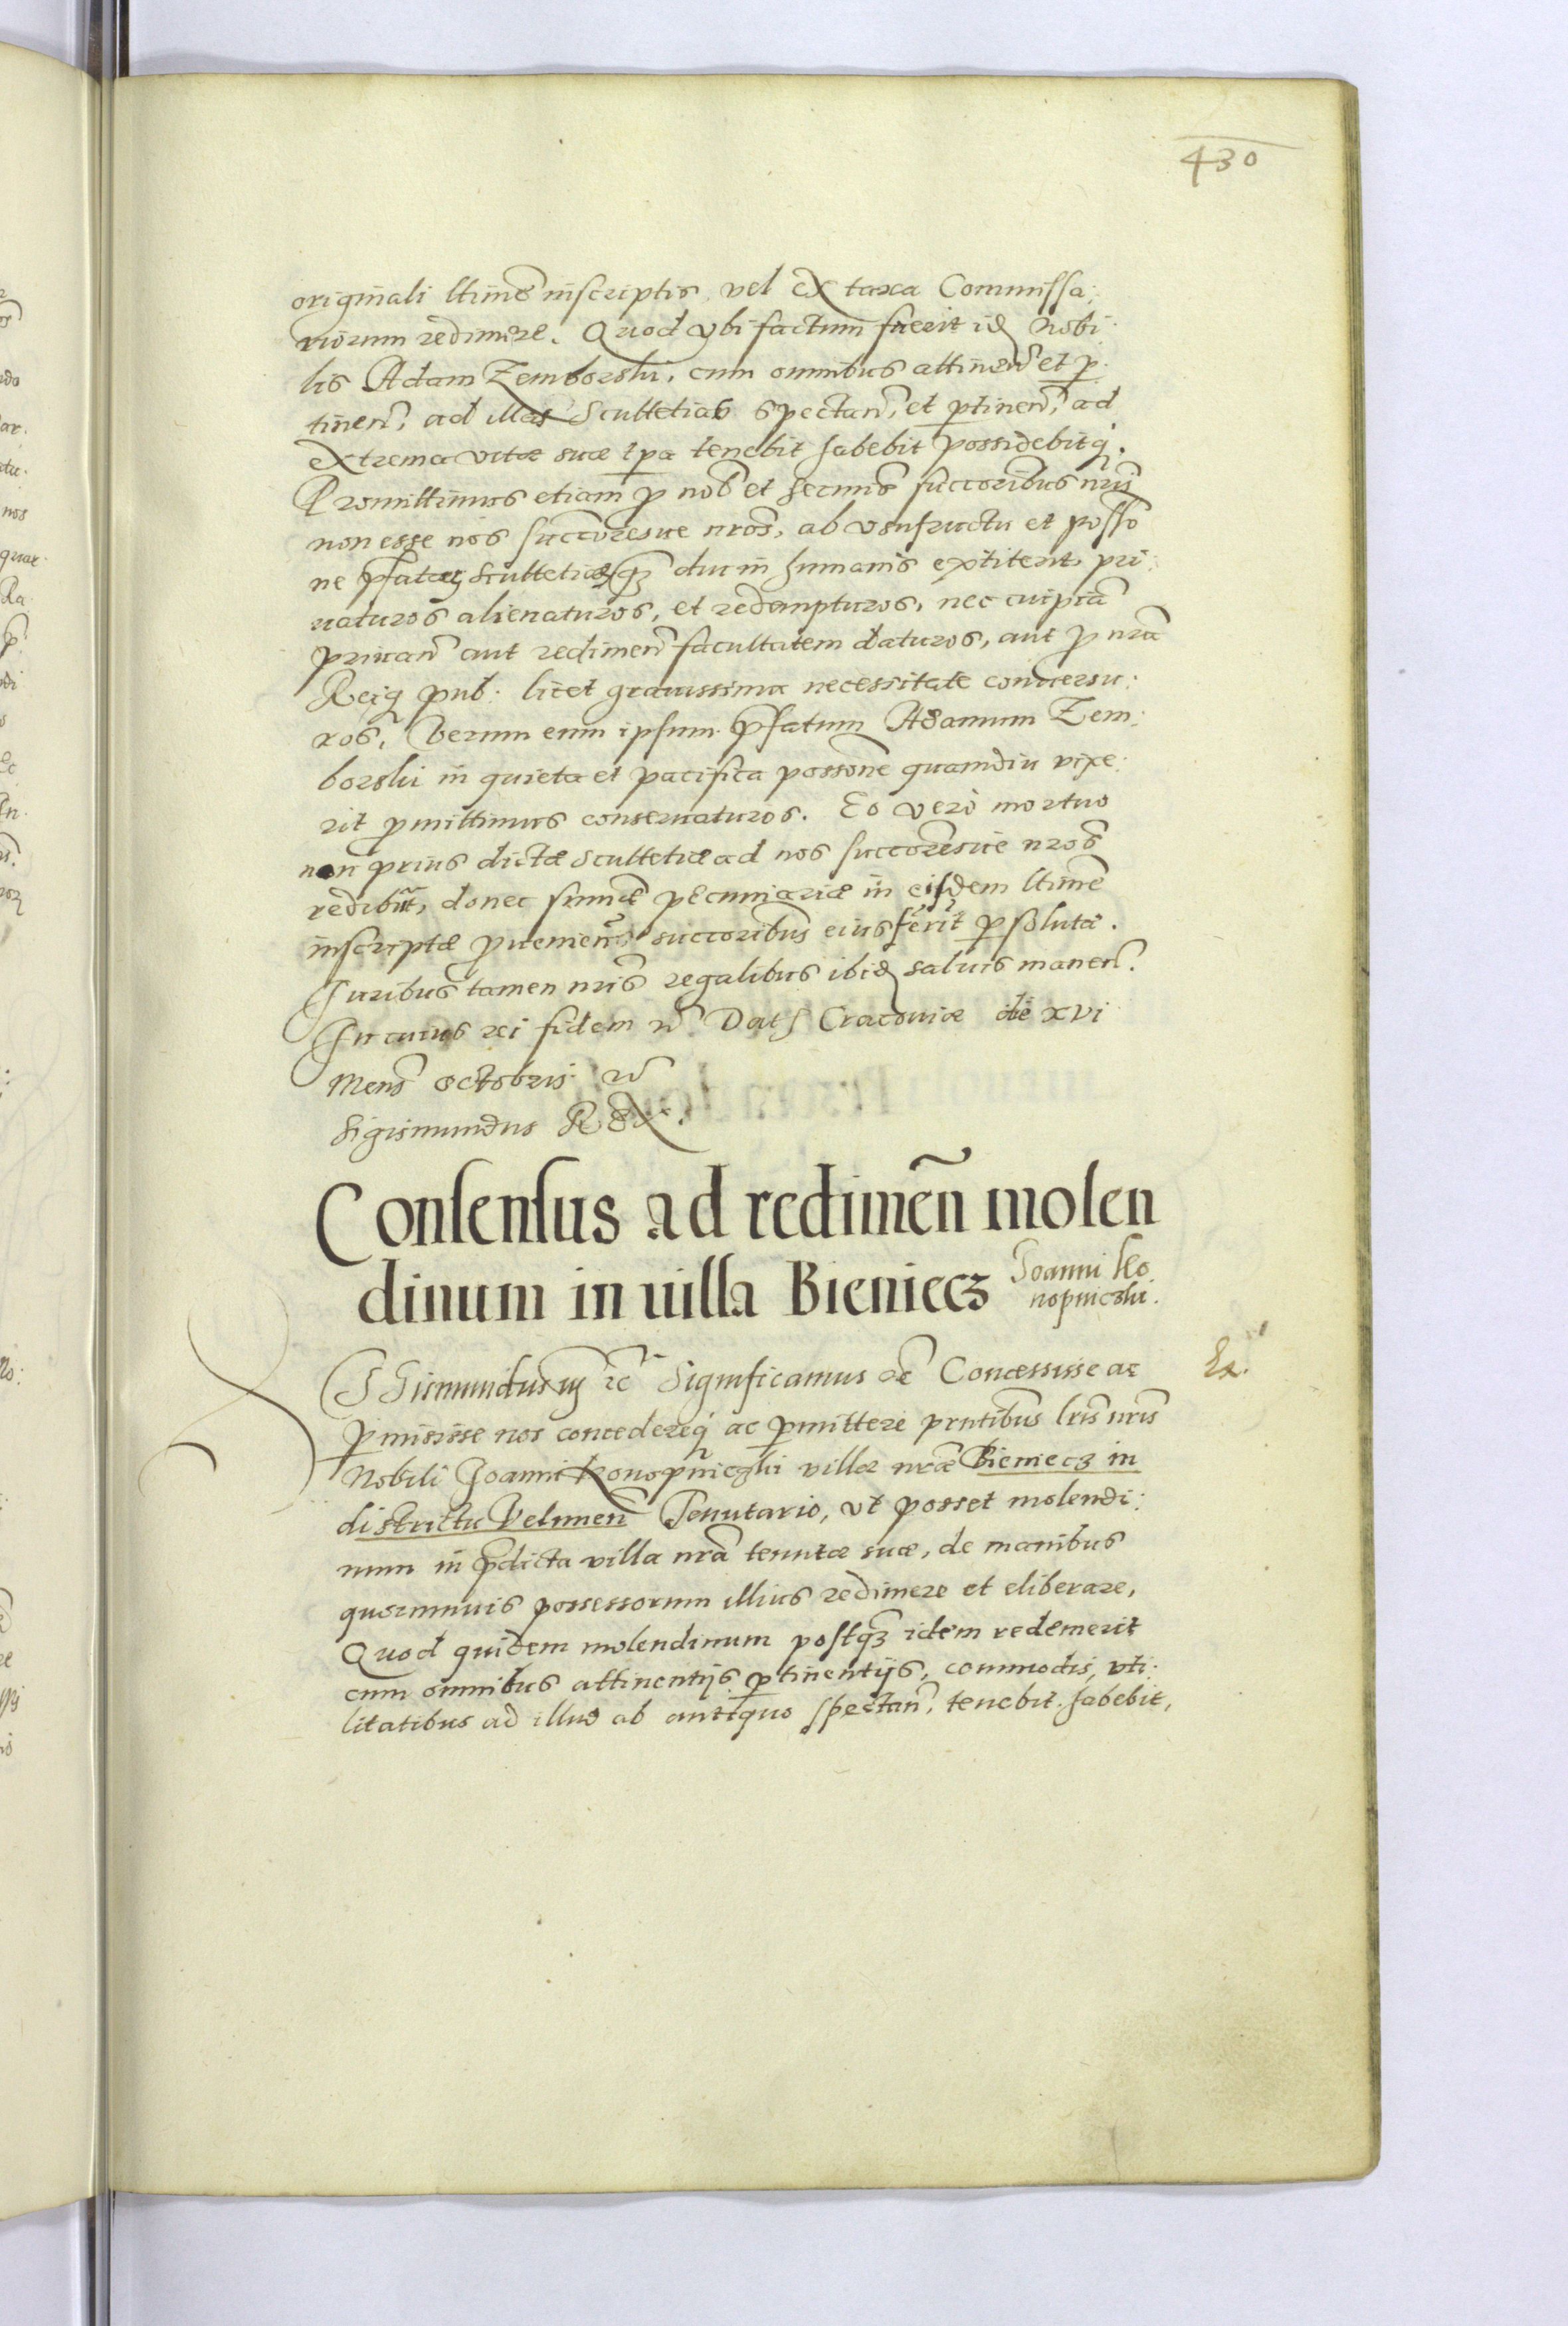 430
originali ltimẽ inscriptis, vel ex taxa Commissa:
riorum redimere. Quod vbi factum fuerit idẽ Nobi:
lis Adam Zemborski, cum omnibus attineñ et p:
tineñ, ad illas Scultetias spectañ, et ptineñ, ad
extrema vitæ suæ tpa tenebit habebit possidebitq́.
Promittimus etiam p nob̃ et sermĩs succoribus nris
non esse nos succoresue nros, ab vsufructu et possõ
ne pfatæ Scultetiæ quã diu in humanis extiterit, pri:
uaturos alienaturos, et redempturos, nec cuipiã
priuañ aut redimeñ facultatem daturos, aut p nrã
Reiq pub: licet grauissima necessitate conuersu:
ros, Verum eum ipsum pfatum Adamum Zem:
borski in quieta et pacifica possõne quamdiu vixe:
rit pmittimus conseruaturos. Eo vero mortuo
non prius dictæ Scultetiæ ad nos succoresue nros
redibũt, donec summæ pecuniariæ in eisdem ltimẽ
inscriptæ pueñieñ succoribus eius fũrit psolutæ.
Juribus tamen nris regalibus ibidẽ saluis maneñ.
In cuius rei fidem rc̃ Dat Cracouiæ die xvi
Mens̃ octobris rc̃
Sigismundus Rex.
Consensus ad redimeñ molen
dinum in uilla Bieniecz
Joanni Ko
nopniczki.
Ex.
SIgismundus iij rc̃ Significamus rc̃ Concessisse ac
pmisisse nos concedereq́ ac pmittere pntibus lris nris
Nobili Joanni Konopniczki villæ nræ Bieniecz in
districtu Veluneñ Tenutario, vt posset molendi:
num in pdicta villa nrã tenutæ suæ, de manibus
quorumuis possessorum illius redimere et eliberare,
Quod quidem molendinum postq̃ idem redemerit
cum omnibus attinentijs ptinentijs, commodis, vti:
litatibus ad illud ab antiquo spectañ, tenebit habebit,